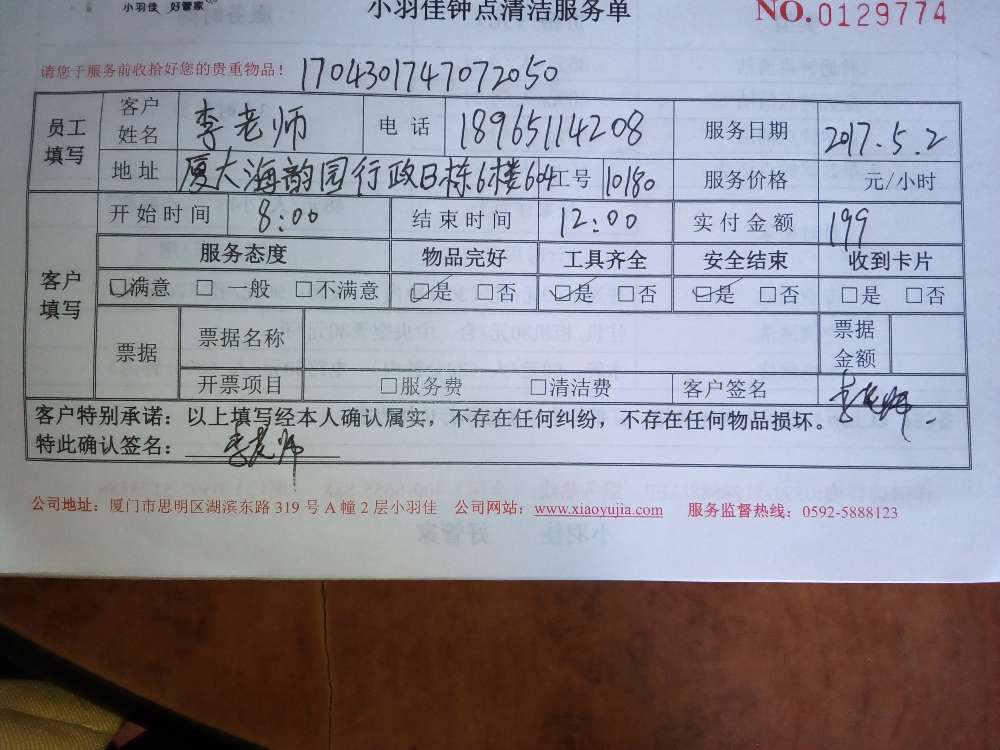 小羽佳 好管家
小羽佳钟点清洁服务单
NO.0129774
请您于服务前收拾好您的贵重物品！ 1704301747072050
员工填写 客户姓名 李老师 电话 18965114208 服务日期 2017.5.2
地址 厦大海韵园行政B栋6楼604 工号 10180 服务价格 元/小时
客户填写 开始时间 8:00 结束时间 12:00 实付金额 199
服务态度 物品完好 工具齐全 安全结束 收到卡片
☑满意 □一般 □不满意 ☑是 □否 ☑是 □否 ☑是 □否 □是 □否
票据 票据名称 票据金额
开票项目 □服务费 □清洁费 客户签名 李老师
客户特别承诺：以上填写经本人确认属实，不存在任何纠纷，不存在任何物品损坏。
特此确认签名：李老师
公司地址：厦门市思明区湖滨东路 319 号 A 幢 2 层小羽佳 公司网站：www.xiaoyujia.com 服务监督热线：0592-5888123